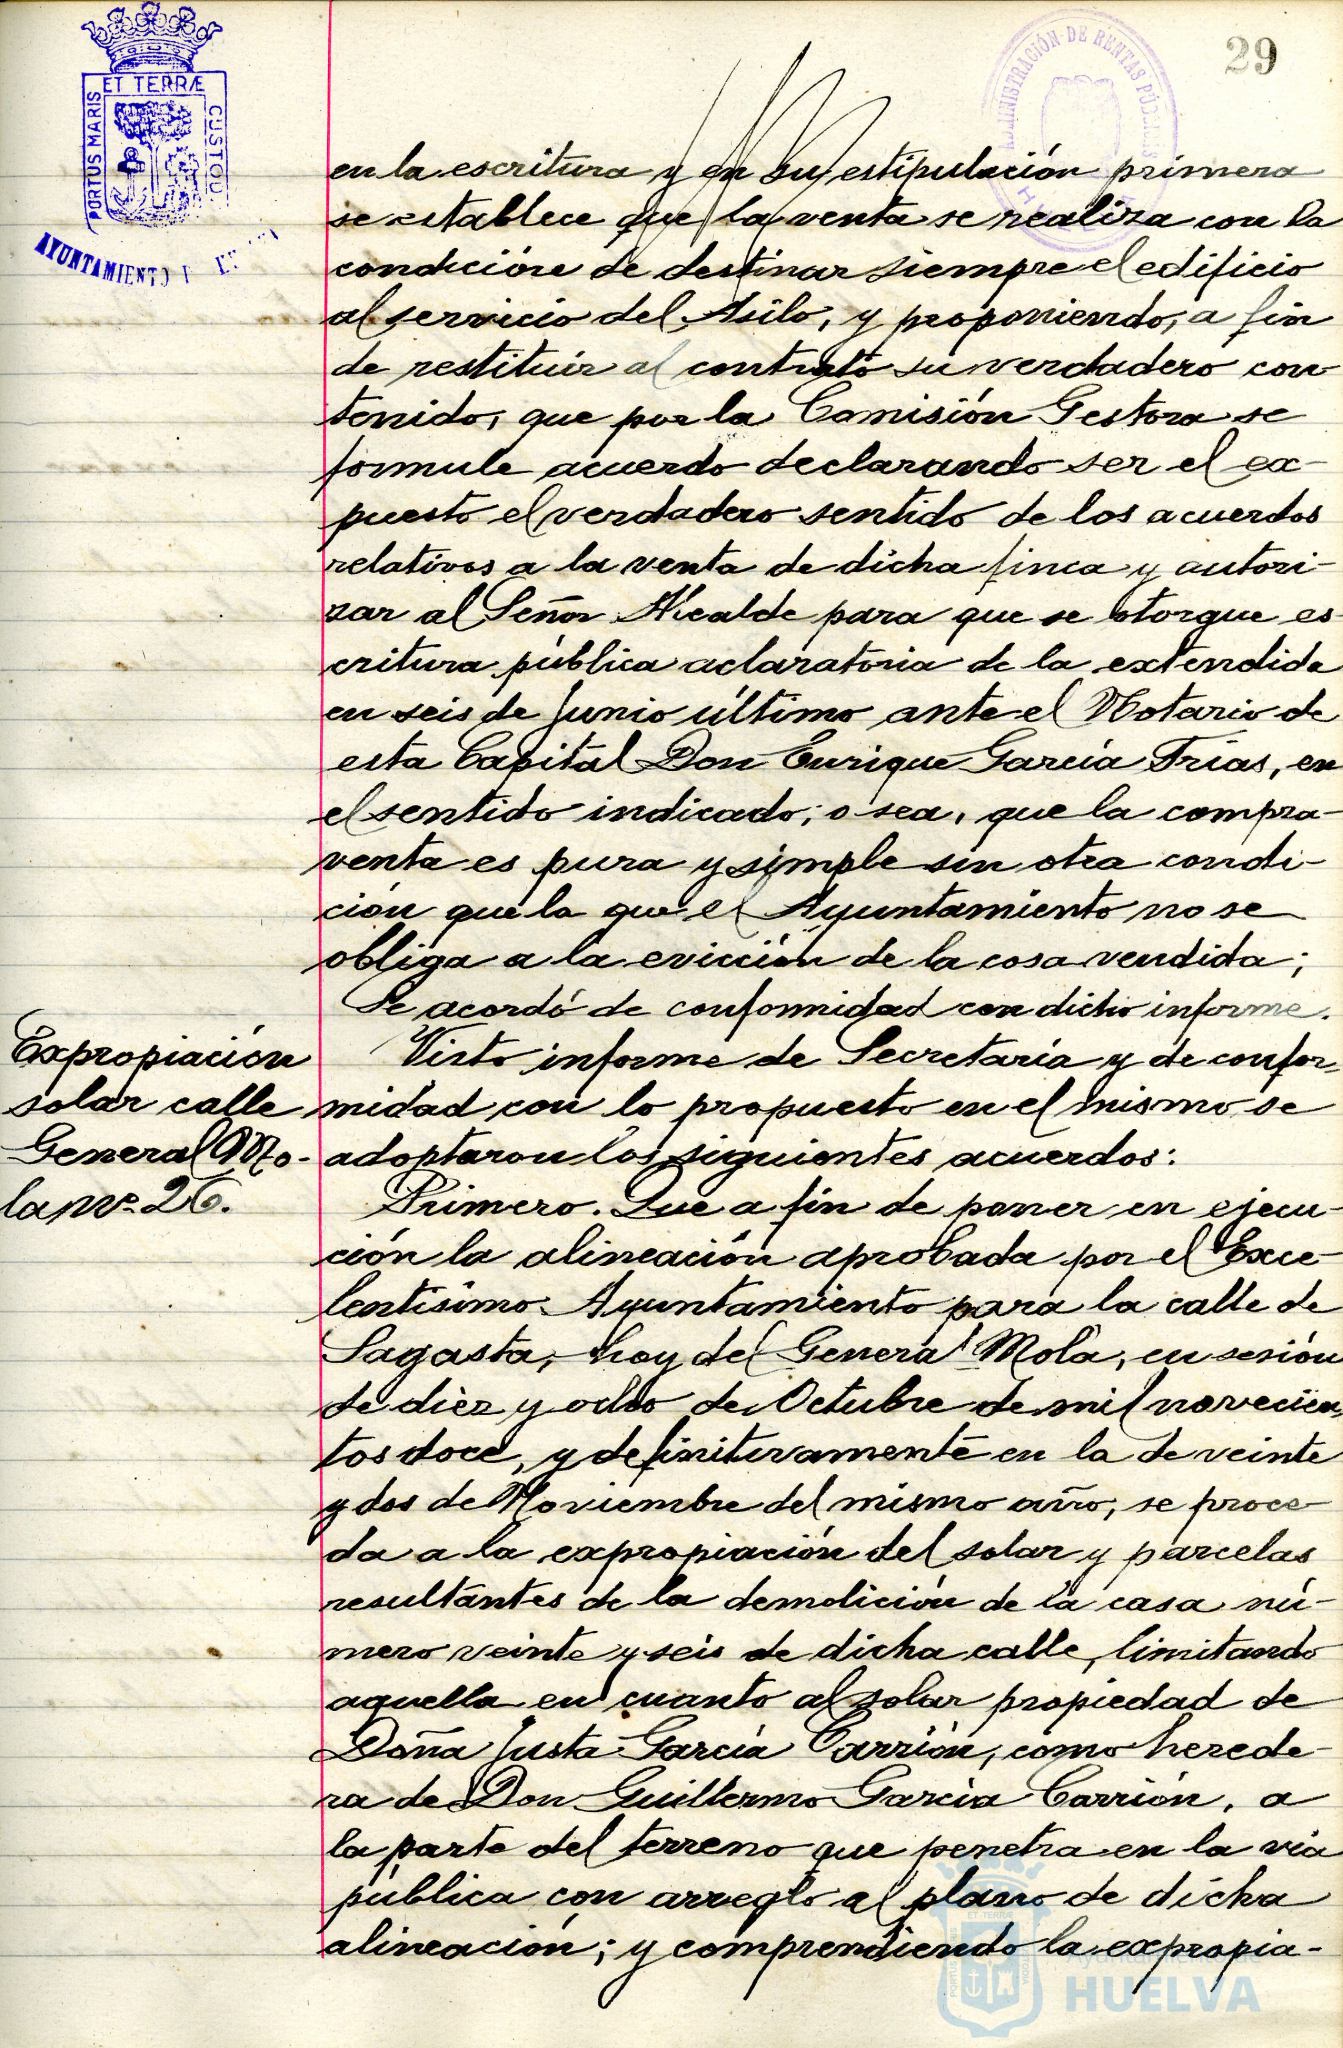 29
ET TERRÆ
PORTUS MARIS
CUSTOD
AYUNTAMIENTO
ADMINISTRACIÓN DE RENTAS PÚBLICAS
en la escritura y en su estipulación primera
se establece que la venta se realiza con la
condición de destinar siempre el edificio
al servicio del Asilo, y proponiendo, a fin
de restituir al contrato su verdadero con
tenido, que por la Comisión Gestora se
formule acuerdo declarando ser el ex-
puesto el verdadero sentido de los acuerdos
relativos a la venta de dicha finca y autori-
zar al Señor Alcalde para que se otorgue es
critura pública aclaratoria de la extendida
en seis de Junio último ante el Notario de
esta Capital Don Enrique García Frías, en
el sentido indicado; o sea, que la compra-
venta es pura y simple sin otra condi-
ción que la que el Ayuntamiento no se
obliga a la evicción de la cosa vendida;
Se acordó de conformidad con dicho informe.
Expropiación
solar calle
General Mo-
la nº 26.
Visto informe de Secretaría y de confor-
midad con lo propuesto en el mismo se
adoptaron los siguientes acuerdos:
Primero. Que a fin de poner en ejecu-
ción la alineación aprobada por el Exce-
lentísimo Ayuntamiento para la calle de
Sagasta, hoy del General Mola, en sesión
de diez y ocho de Octubre de mil novecien
tos doce, y definitivamente en la de veinte
y dos de Noviembre del mismo año, se proce-
da a la expropiación del solar y parcelas
resultantes de la demolición de la casa nú-
mero veinte y seis de dicha calle, limitando
aquella en cuanto al solar propiedad de
Doña Justa García Carrión, como herede-
ra de Don Guillermo García Carrión, a
la parte del terreno que penetra en la vía
pública con arreglo al plano de dicha
alineación; y comprendiendo la expropia-
Ayuntamiento de
HUELVA